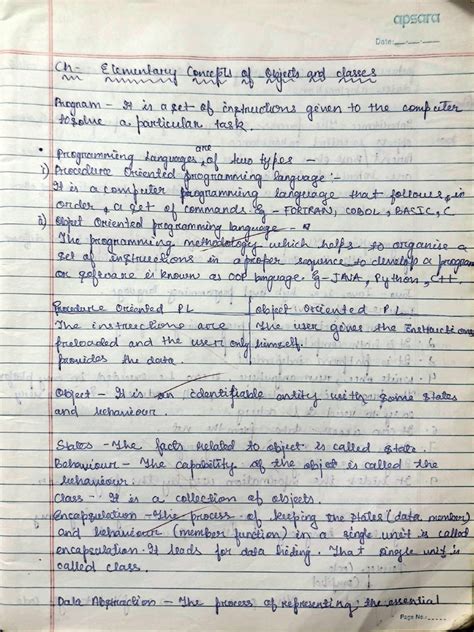 apsara
Date:
Ch- Elementary Concepts of Objects and classes
Program - It is a set of instructions given to the computer
to solve a particular task.
• Programming languages are of two types -
i) Procedure Oriented programming language :-
It is a computer programming language that follows, in
order, a set of commands. Eg - FORTRAN, COBOL, BASIC, C
ii) Object Oriented programming language -
The programming methodology which helps to organise a
set of instructions in a proper sequence to develop a program
or software is known as OOP language. Eg - JAVA, Python, C++.
Procedure Oriented PL
Object Oriented PL
The instructions are
The user gives the instructions
preloaded and the user only
himself.
provides the data.
Object - It is an identifiable entity with some states
and behaviour.
States - The facts related to object is called state.
Behaviour - The capability of the object is called the
behaviour.
Class - It is a collection of objects.
Encapsulation - The process of keeping the states (data member)
and behaviour (member function) in a single unit is called
encapsulation. It leads for data hiding. That single unit is
called class.
Data Abstraction - The process of representing the essential
Page No.